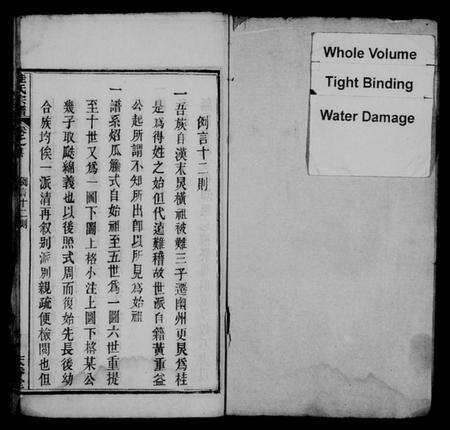 例言十二則
一吾族自漢末炅橫祖被難三子遷幽州更炅為桂
是為得姓之始但代遠難稽故世派自籍黃重益
公起所謂不知所出卽以所見為始祖
一譜系倣瓜藤式自始祖至五世為一圖六世重提
至十世又為一圖下圖上格小注上圖下格某公
幾子取瓞綿義也以後照式周而復始先長後幼
合族均俟一派清再叙别派别親疏便檢閱也但
氏宗譜
卷之首
例言十二則
Whole Volume
Tight Binding
Water Damage